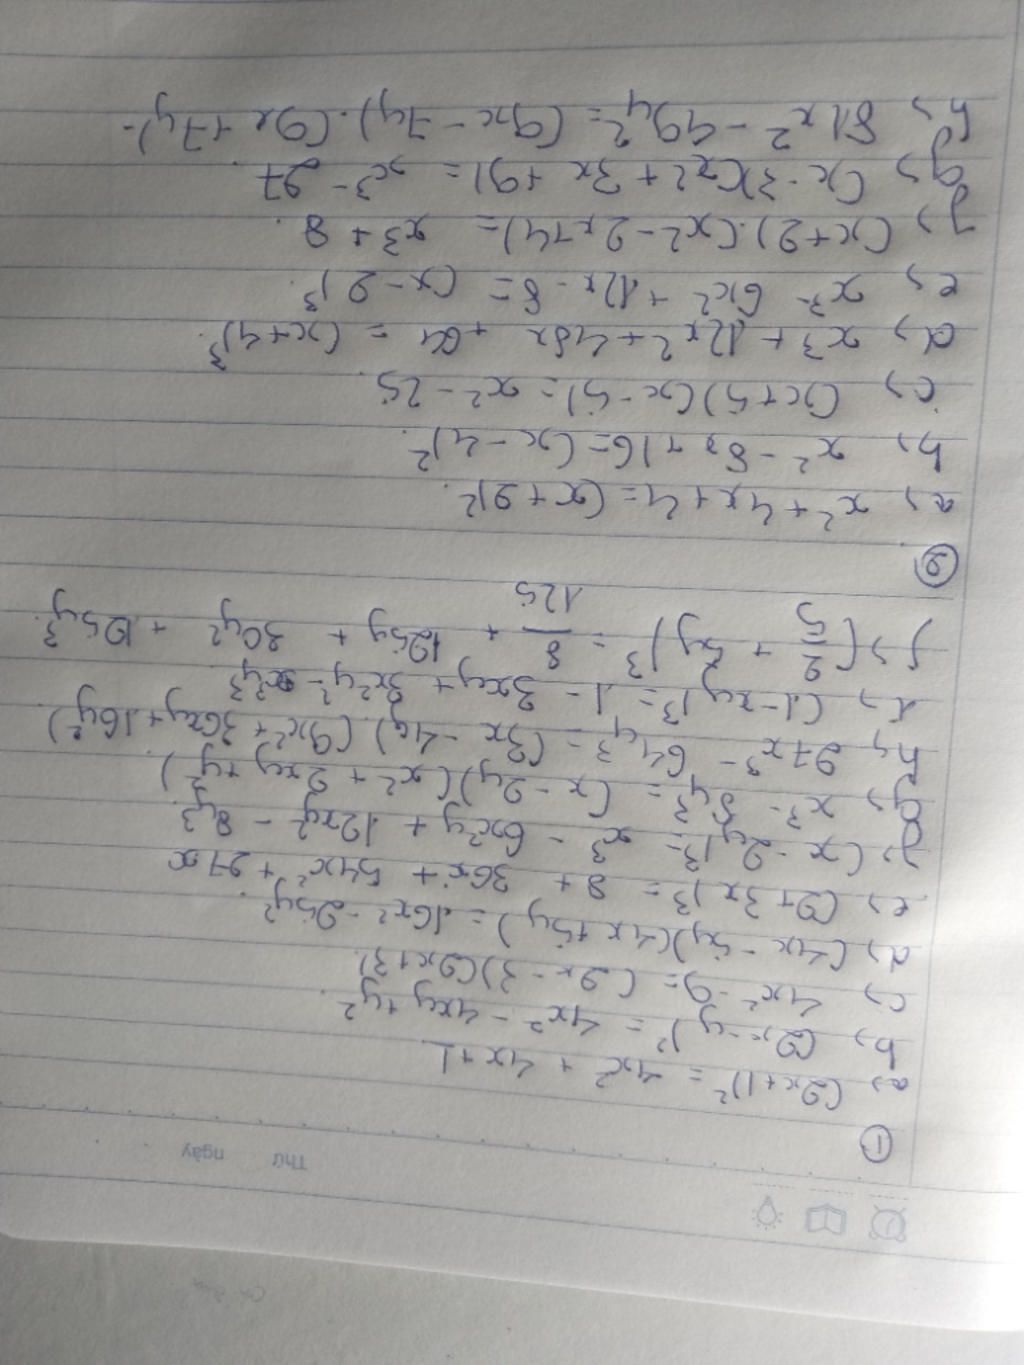 Thứ ngày
①
a, (2x+1)² = 4x² + 4x+1
b, (2x-y)² = 4x² - 4xy + y².
c, 4x² - 9 = (2x - 3)(2x+3)
d, (4x - 5y)(4x+5y) = 16x² - 25y².
e, (2+3x)³ = 8 + 36x + 54x² + 27x
f, (x - 2y)³ = x³ - 6x²y + 12xy² - 8y³.
g, x³ - 8y³ = (x - 2y)(x² + 2xy + y²)
h, 27x³ - 64y³ = (3x - 4y).(9x² + 36xy + 16y²)
i, (1 - xy)³ = 1 - 3xy + 3x²y² - x³y³.
j, (2/5 + 5y)³ = 8/125 + 125y + 30y² + 125y³.
②
a, x² + 4x + 4 = (x+2)².
b, x² - 8x + 16 = (x - 4)².
c, (x+5)(x-5) = x² - 25.
d, x³ + 12x² + 48x + 64 = (x+4)³.
e, x³ - 6x² + 12x - 8 = (x - 2)³.
f, (x+2).(x² - 2x+4) = x³ + 8.
g, (x-3)(x² + 3x + 9) = x³ - 27
h, 81x² - 49y² = (9x - 7y).(9x + 7y).